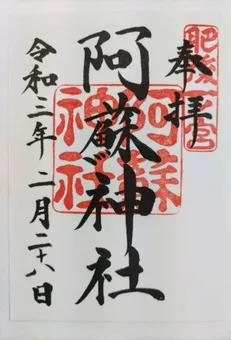 肥後一宮
奉拝
阿蘇神社
阿蘇神社
令和三年二月二十八日